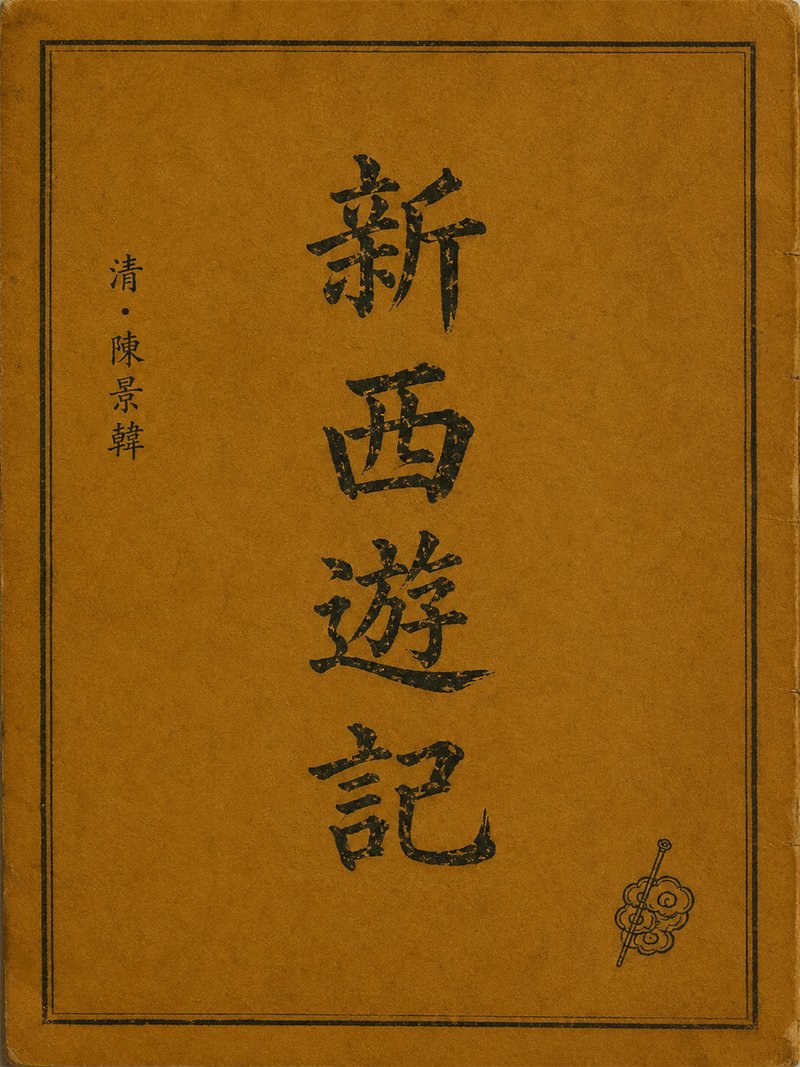 新西遊記
清・陳景韓